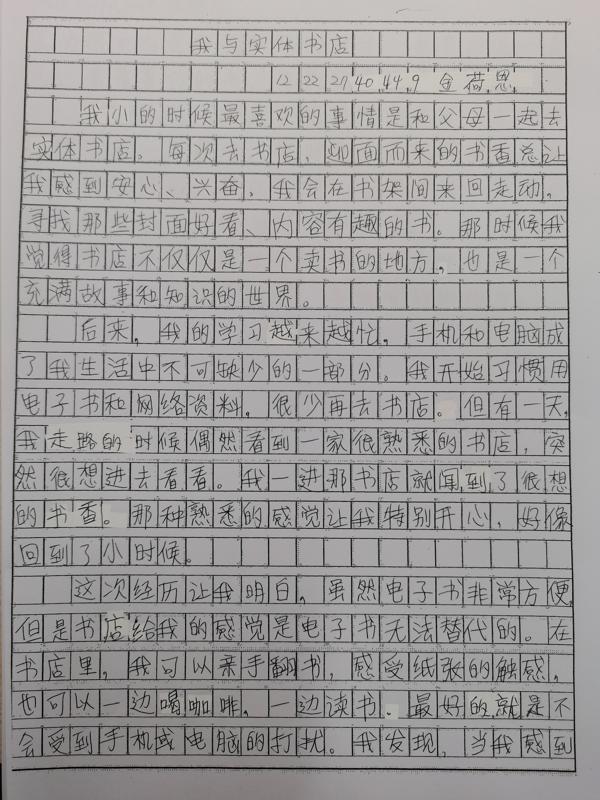 我与实体书店
12 22 27 40 44 9 金荷恩
我小的时候最喜欢的事情是和父母一起去
实体书店。每次去书店，迎面而来的书香总让
我感到安心、兴奋，我会在书架间来回走动，
寻找那些封面好看、内容有趣的书。那时候我
觉得书店不仅仅是一个卖书的地方，也是一个
充满故事和知识的世界。
后来，我的学习越来越忙，手机和电脑成
了我生活中不可缺少的一部分。我开始习惯用
电子书和网络资料，很少再去书店。但有一天，
我走路的时候偶然看到一家很熟悉的书店，突
然很想进去看看。我一进那书店就闻到了很想
的书香。那种熟悉的感觉让我特别开心，好像
回到了小时候。
这次经历让我明白，虽然电子书非常方便，
但是书店给我的感觉是电子书无法替代的。在
书店里，我可以亲手翻书，感受纸张的触感，
也可以一边喝咖啡，一边读书。最好的就是不
会受到手机或电脑的打扰。我发现，当我感到